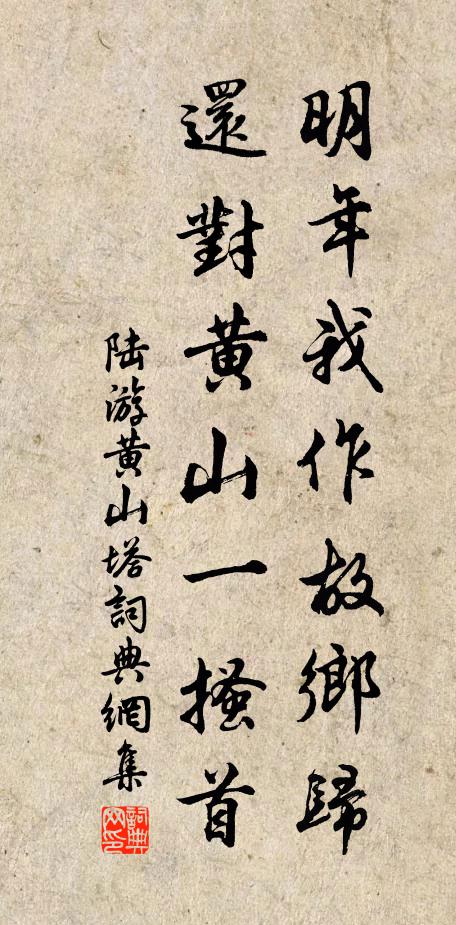 明年我作故鄉歸
還對黃山一搔首
陆游黃山塔詞典網集
詞典網印